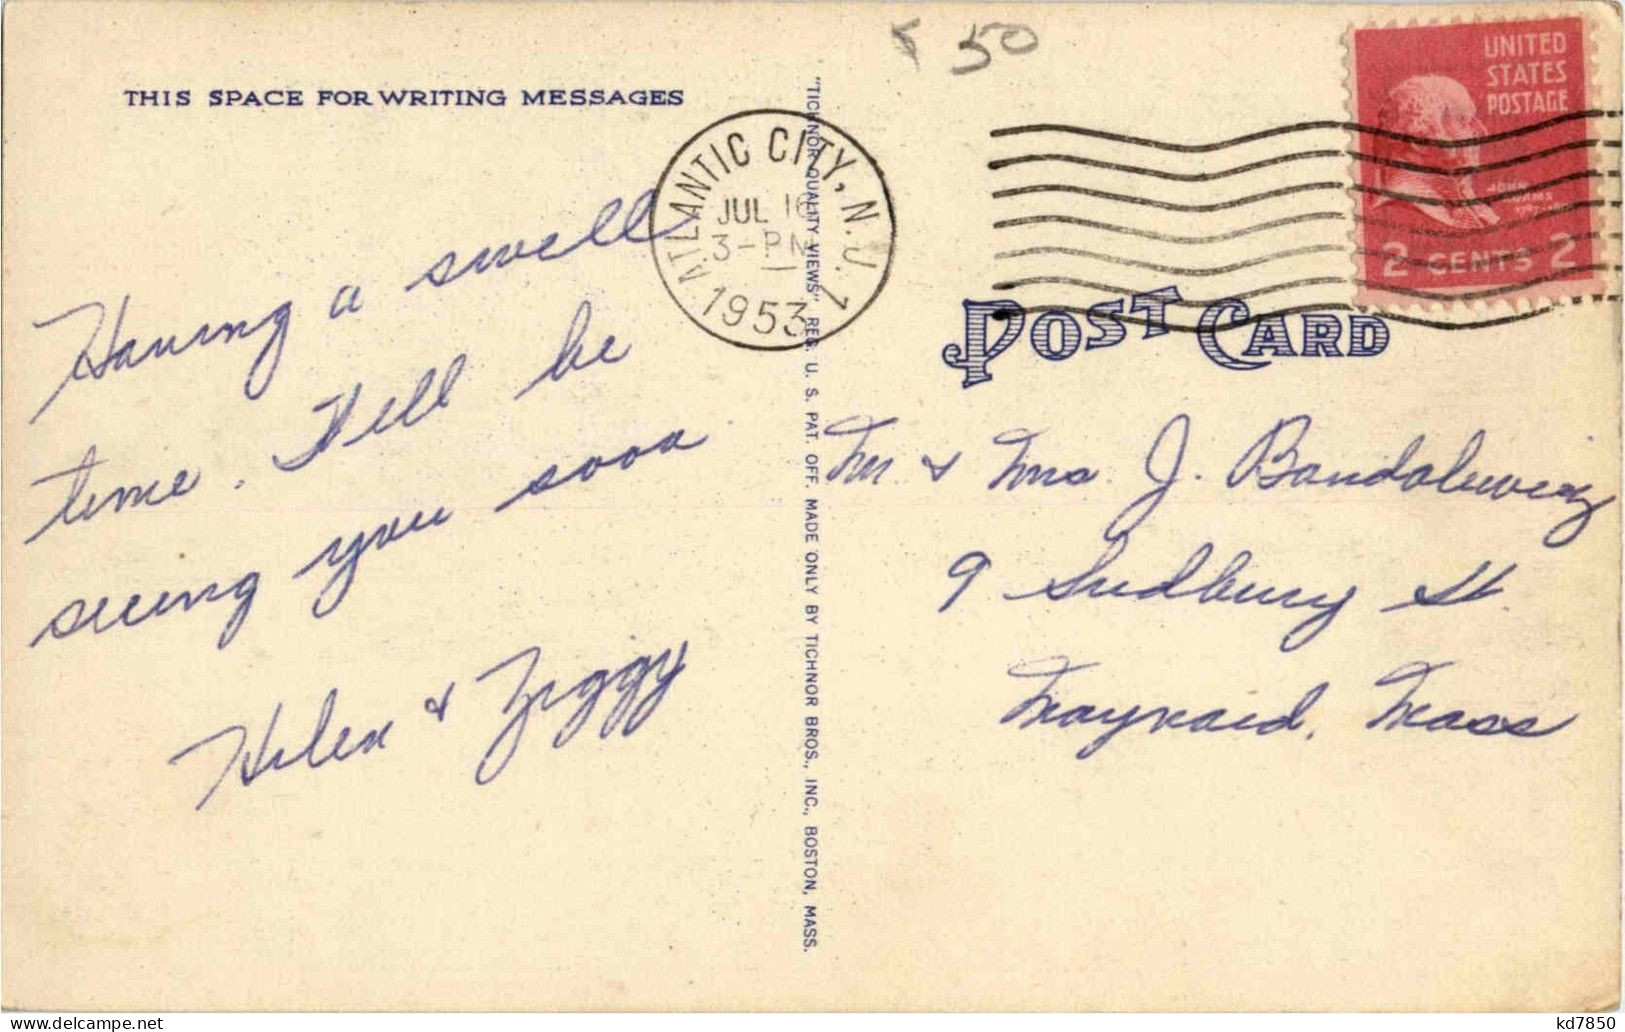 THIS SPACE FOR WRITING MESSAGES
Having a swell
time. Will be
seeing you soon
Helen & Ziggy
"TICHNOR QUALITY VIEWS" REG. U. S. PAT. OFF. MADE ONLY BY TICHNOR BROS., INC., BOSTON, MASS.
50
ATLANTIC CITY, N.J. 1
JUL 16
3-PM
1953
UNITED
STATES
POSTAGE
JOHN
ADAMS
2 CENTS 2
POST CARD
Mr. & Mrs. J.
9 Sudbury St.
Maynard, Mass
kd7850